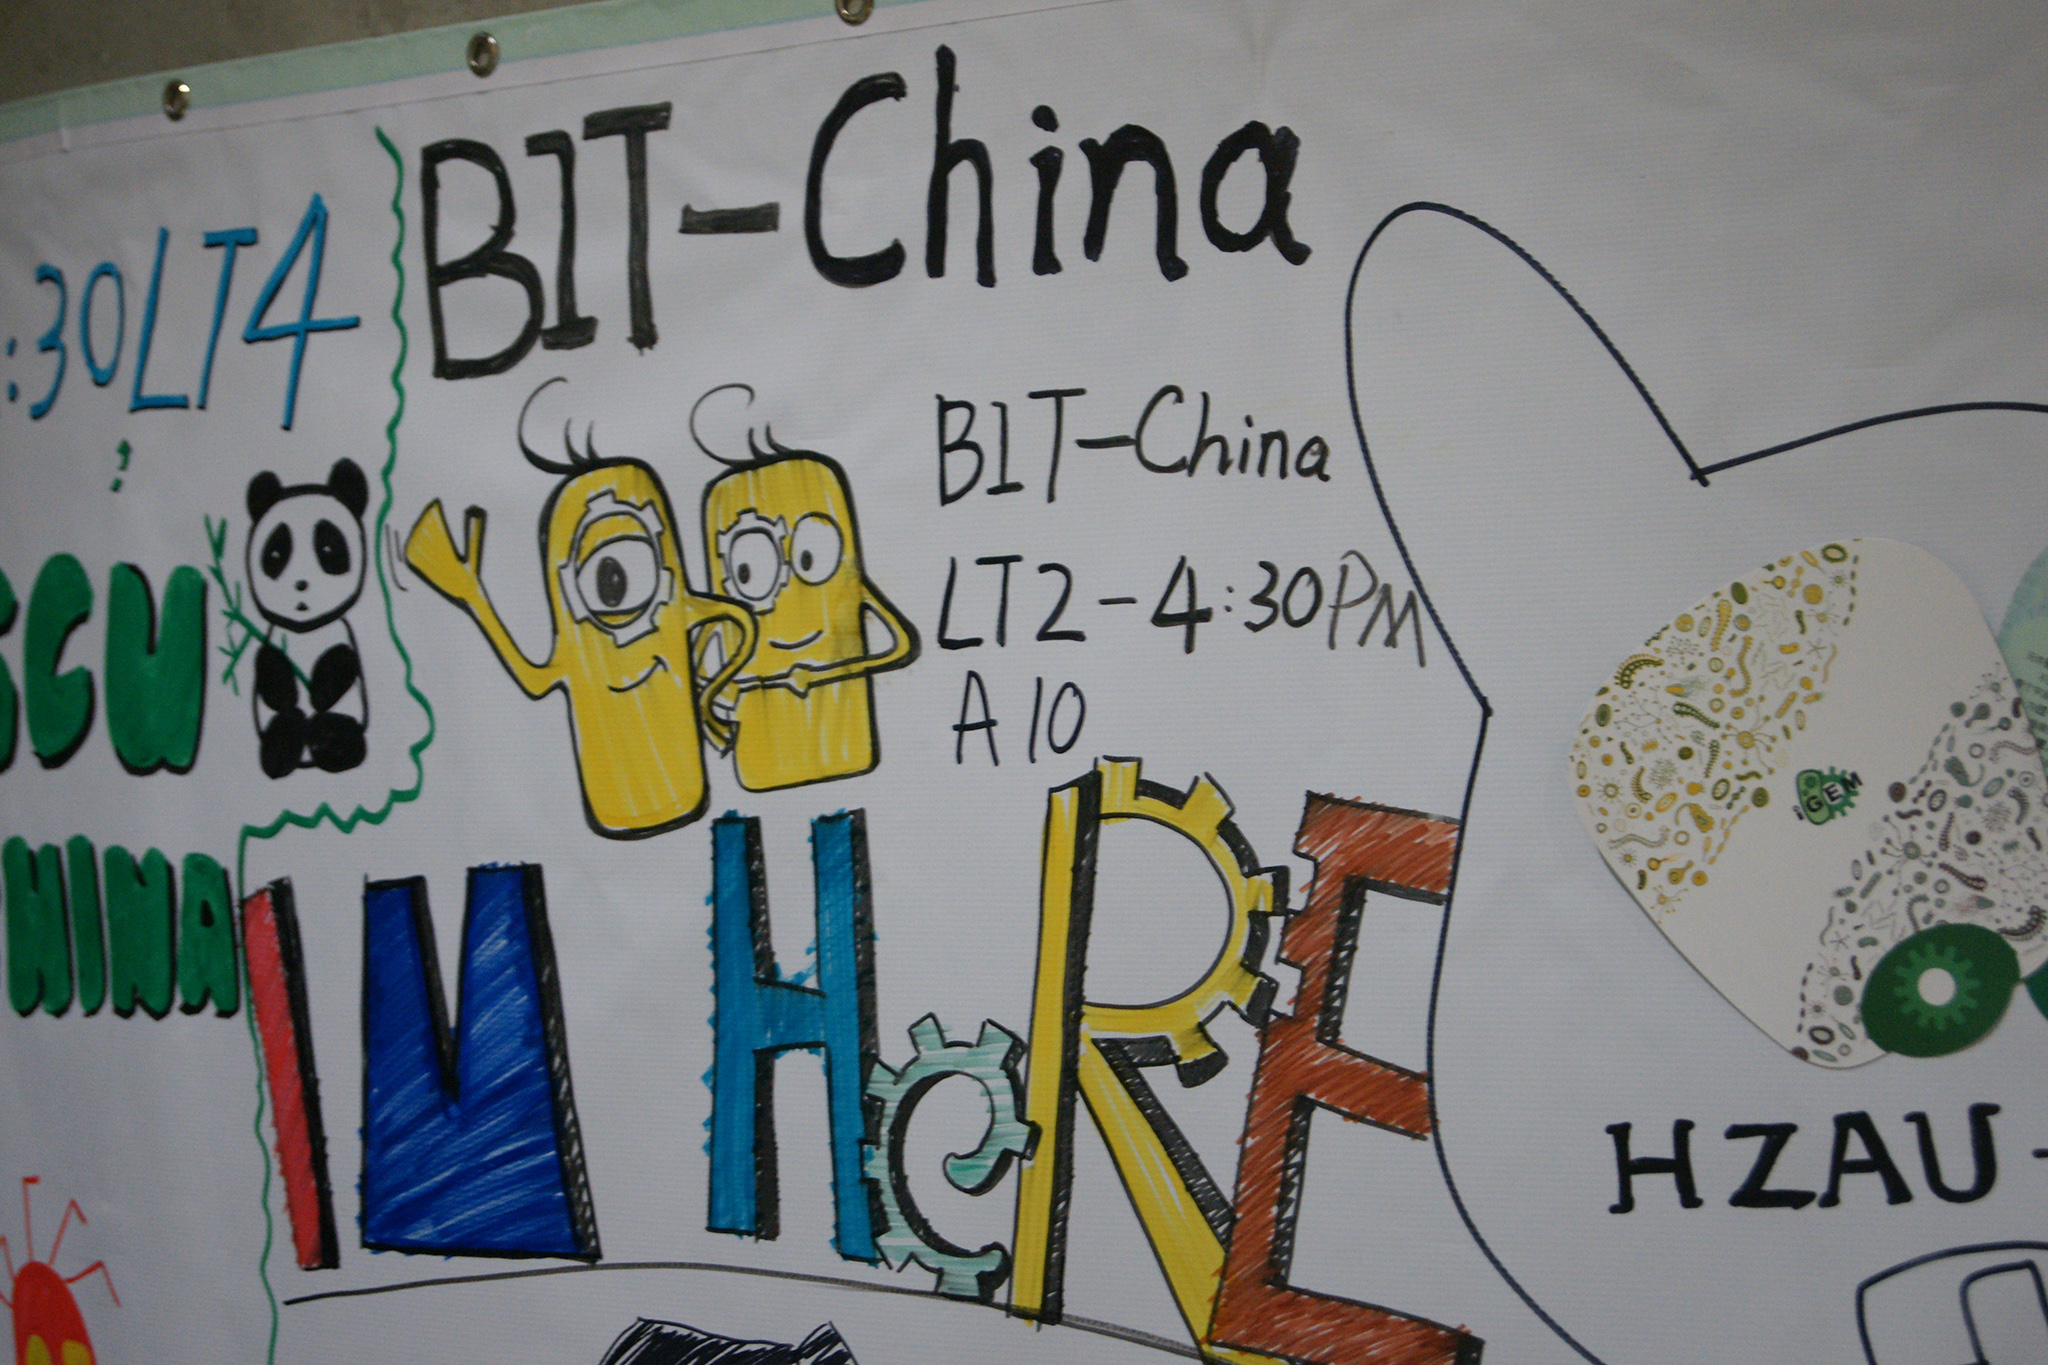 :30 LT4
SCU
CHINA
BIT-China
BIT-China
LT2-4:30PM
A10
IM HeRE
iGEM
HZAU-